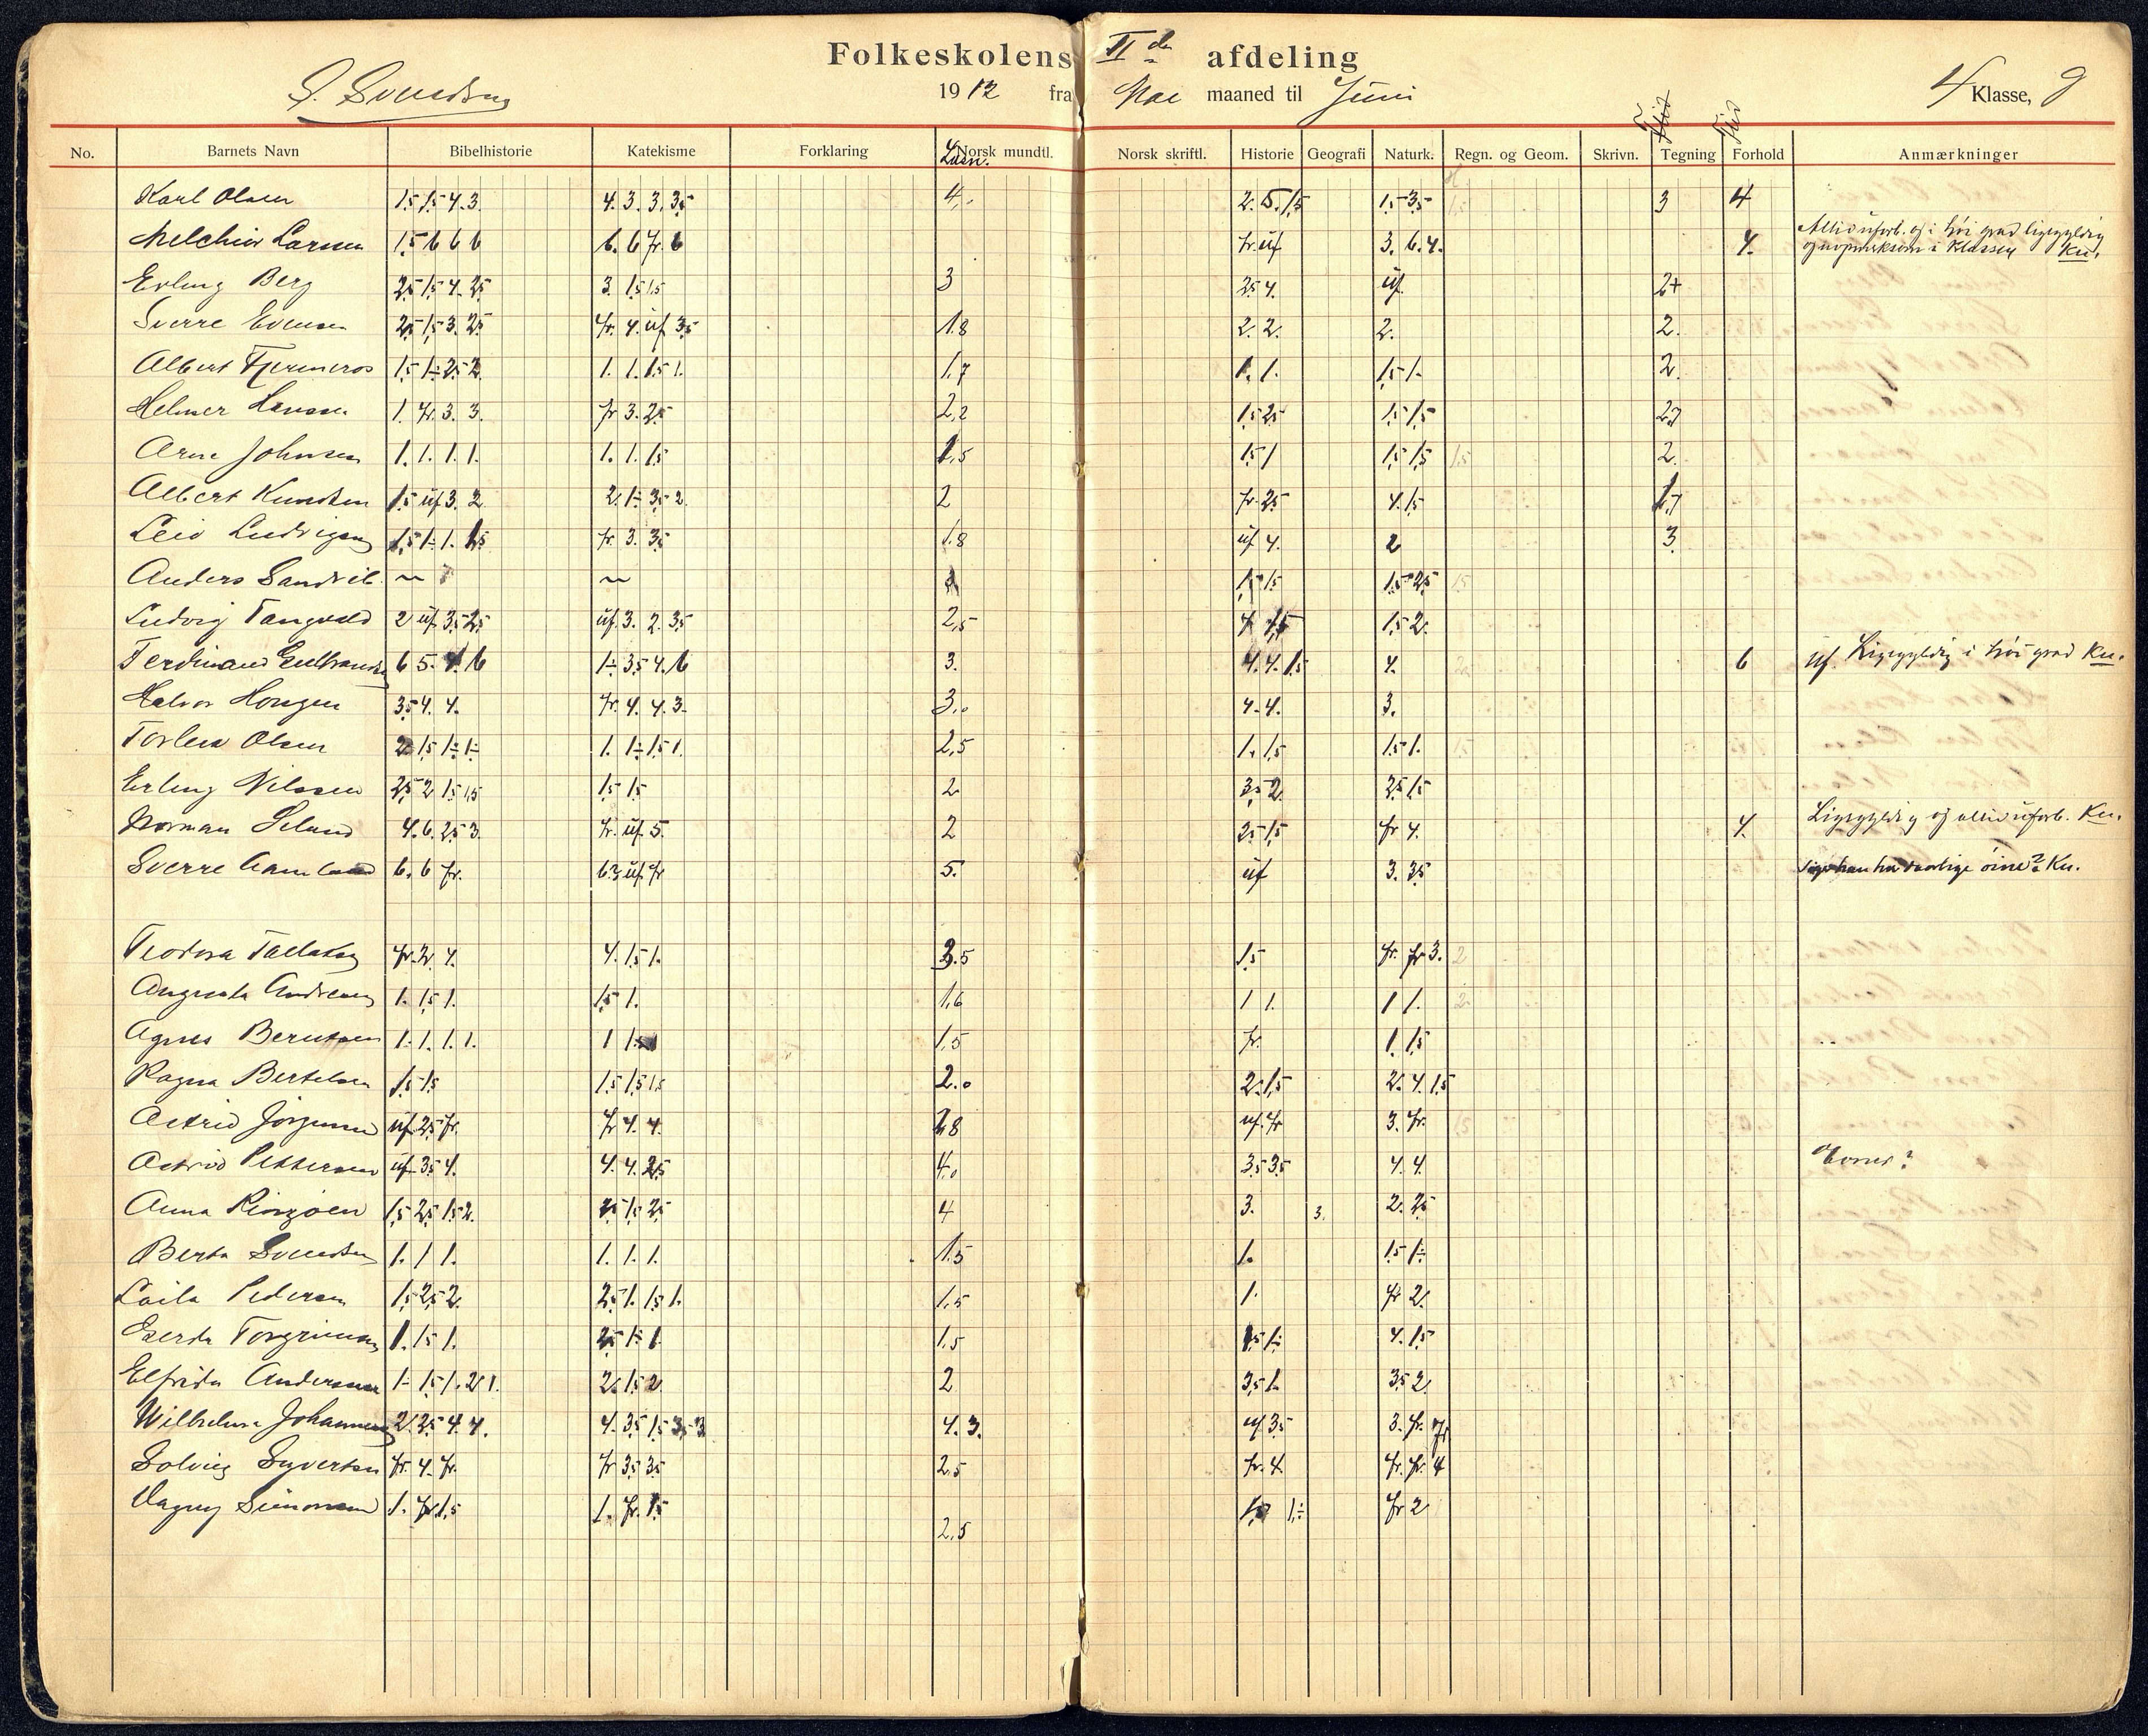 Folkeskolens IIde afdeling
S. Svendsen 1912 fra Mai maaned til Juni 4 Klasse, g
Flid Flid
No. Barnets Navn Bibelhistorie Katekisme Forklaring Norsk mundtl. Læsn. Norsk skriftl. Historie Geografi Naturk. Regn. og Geom. Skrivn. Tegning Forhold Anmærkninger
Karl Olsen 1,5 1,5 4. 3. 4. 3. 3. 3,5 4,0 2. 5. 1,5 1,5 3,5 3 4
Melchior Larsen 1,5 6 6 6 6. 6 fr. 6 fr. uf 3. 6. 4. 4. Altid uforb. og i høi grad ligegyldig
og uopmerksom i Klassen Kn.
Erling Berg 2,5 1,5 4. 2,5 3. 1,5 1,5 3 2,5 4. uf. 2+
Sverre Evensen 2,5 1,5 3. 2,5 fr. 4. uf 3,5 1.8 2. 2. 2. 2.
Albert 1,5 1÷ 2,5 2. 1. 1. 1,5 1. 1,7 1. 1. 1,5 1. 2.
Helmer Hanssen 1. fr. 3. 3. fr 3. 2,5 2,2 1,5 2,5 1,5 1,5 2,7
Arne Johnsen 1. 1. 1. 1. 1. 1. 1,5 1,5 1,5 1 1,5 1,5 1,5 2.
Albert Knudsen 1,5 uf 3. 2. 2. 1÷ 3,5 2. 2 fr. 2,5 4. 1,5 1,7
Leif Ludvigsen 1,5 1÷ 1. 1,5 fr. 3. 3,5 1.8 uf 4. 2 3.
Anders Sandvik ~ ~ 1,5 1,5 1,5 2,5 1,5
Ludvig Tangvald 2 uf 3,5 2,5 uf. 3. 2. 3,5 2,5 4 1,5 1,5 2.
Ferdinand Gulbrandsen 6 5. 4. 6 1÷ 3,5 4. 6 3. 4. 4. 1,5 4. 6 uf. Ligegyldig i høi grad Kn.
Halvor Hougen 3,5 4. 4. fr. 4. 4. 3. 3,0 4. 4. 3.
Torleiv Olsen 2. 1,5 1÷ 1÷ 1. 1÷ 1,5 1. 2,5 1. 1,5 1,5 1. 1,5
Erling Nilssen 2,5 2 1,5 1,5 1,5 1,5 2 3,5 2. 2,5 1,5
Norman Seland 4. 6. 2,5 3. fr. uf. 5. 2 2,5 1,5 fr 4. 4. Ligegyldig og altid uforb. Kn.
Sverre Aamland 6. 6 fr. 6 3 uf fr 5. uf 3. 3,5 Siger han har daarlige øine? Kn.
Teodora Tallaksen fr. 2. 4. 4. 1,5 1. 3.5 1,5 fr. fr 3. 2
Augusta Andresen 1. 1,5 1. 1,5 1. 1,6 1 1. 1 1. 2
Agnes Berntsen 1. 1. 1. 1. 1 1,5 1,5 fr. 1. 1,5
Ragna Bertelsen 1,5 1,5 1,5 1,5 1,5 2.0 2. 1,5 2. 4. 1,5
Astrid Jörgensen uf 2,5 fr. fr 4. 4. 1,8 uf. fr 3. fr. 1,5
Astrid Pettersen uf 3,5 4. 4. 4. 2,5 4,0 3,5 3,5 4. 4.
Anna 1,5 2,5 1,5 2. 2,5 1,5 2,5 4 3. 3. 2. 2,5
Berta Svendsen 1. 1 1. 1. 1. 1. 1.5 1. 1,5 1÷
Laila Pedersen 1,5 2,5 2. 2,5 1. 1,5 1. 1,5 1. fr 2.
Gerda Torgrimsen 1. 1,5 1. 2,5 1,5 1. 1,5 1,5 1÷ 4. 1,5
Elfrida Andersen 1÷ 1,5 1. 2 1. 2. 1,5 2. 2 3,5 1. 3,5 2.
Wilhelmine Johannesen 2. 2,5 4. 4. 4. 3,5 1,5 3,5 3 4. 3. uf 3,5 3. fr. fr
Solveig Syvertsen fr. 4. fr. fr 3,5 3,5 2,5 fr. 4. fr. fr. 4
Dagny Simonsen 1. fr. 1,5 1. fr. 1,5 2,5 1÷ fr 2